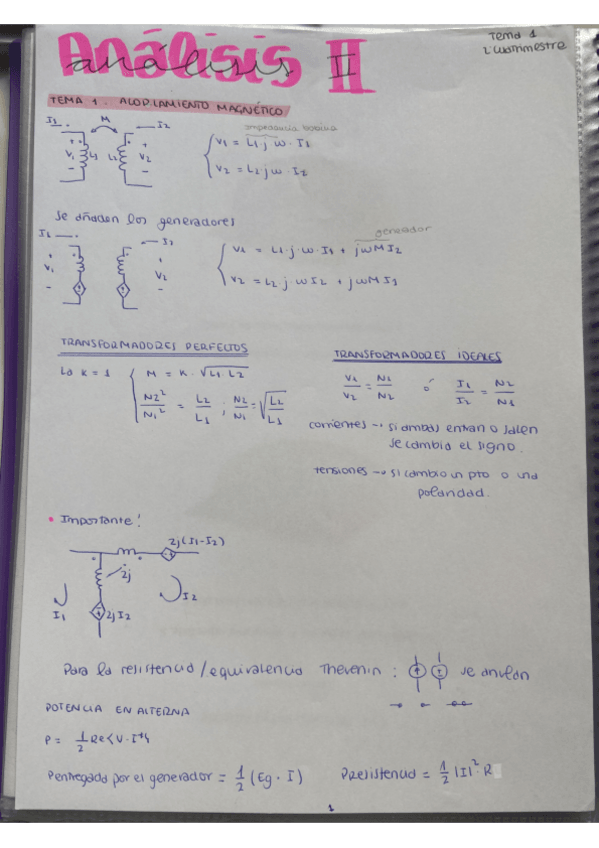 Análisis II
análisis
Tema 1
2ºcuatrimestre
TEMA 1. ACOPLAMIENTO MAGNÉTICO
I1 M I2
+ V1 - L1 L2 + V2 -
impedancia bobina
V1 = L1·j ω·I1
V2 = L2 j ω·I2
Se añaden los generadores
I1 I2
+ V1 - + V2 -
generador
V1 = L1·j·ω·I1 + jωM I2
V2 = L2 j ω I2 + jωM I1
TRANSFORMADORES PERFECTOS
La k = 1
M = K·√L1 L2
N2²/N1² = L2/L1 ; N2/N1 = √L2/L1
TRANSFORMADORES IDEALES
V1/V2 = N1/N2 ó I1/I2 = N2/N1
corrientes → si ambas entran o salen
se cambia el signo.
tensiones → si cambio un pto o una
polaridad.
• Importante!
2j(I1-I2)
2j
I1 2j I2 I2
Para la resistencia/equivalencia Thevenin : se anulan
POTENCIA EN ALTERNA
P = 1/2 Re<V·I*>
Pentregada por el generador = 1/2 (Eg·I)
Presistencia = 1/2 |I|²·R
1